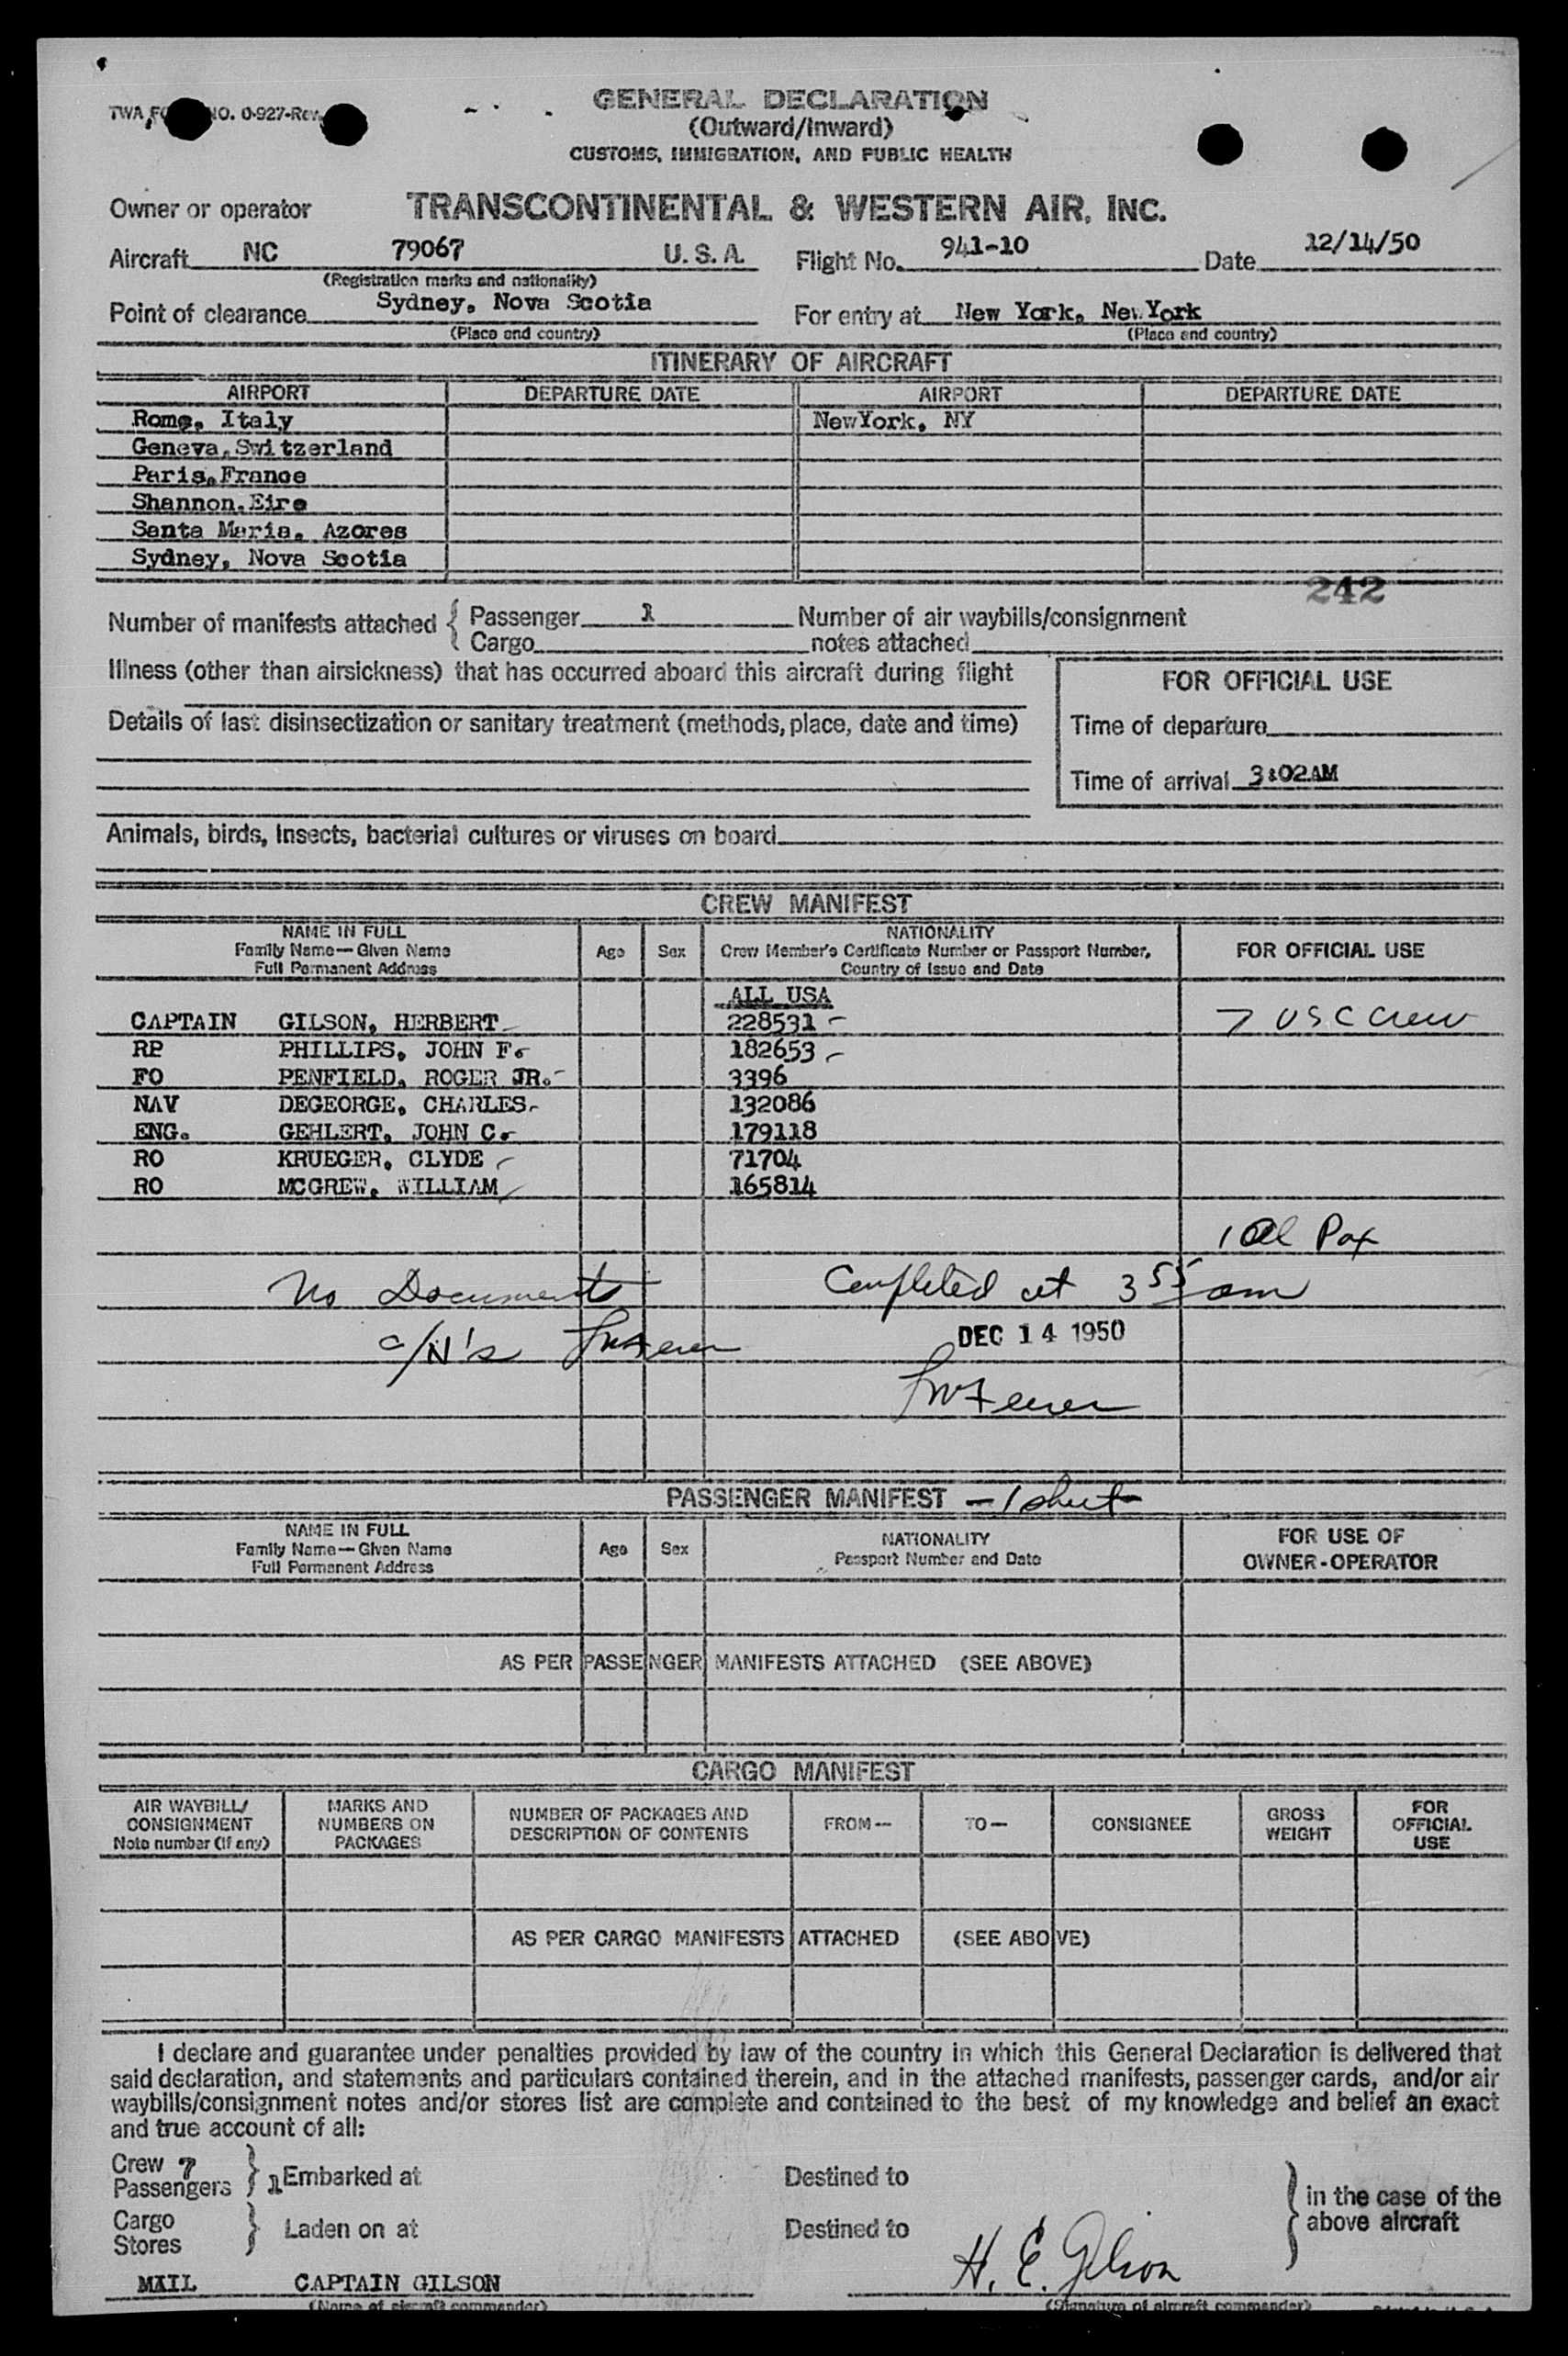 TWA FO NO. 0-927-Rev.
GENERAL DECLARATION
(Outward/Inward)
CUSTOMS, IMMIGRATION, AND PUBLIC HEALTH
Owner or operator TRANSCONTINENTAL & WESTERN AIR, INC.
Aircraft NC 79067 U. S. A. Flight No. 941-10 Date 12/14/50
(Registration marks and nationality)
Point of clearance Sydney, Nova Scotia For entry at New York, New York
(Place and country) (Place and country)
ITINERARY OF AIRCRAFT
AIRPORT DEPARTURE DATE AIRPORT DEPARTURE DATE
Rome, Italy NewYork, NY
Geneva,Switzerland
Paris,France
Shannon,Eire
Santa Maria, Azores
Sydney, Nova Scotia
242
Number of manifests attached { Passenger 1 Number of air waybills/consignment
Cargo notes attached
Illness (other than airsickness) that has occurred aboard this aircraft during flight
FOR OFFICIAL USE
Details of last disinsectization or sanitary treatment (methods, place, date and time)
Time of departure
Time of arrival 3:02AM
Animals, birds, insects, bacterial cultures or viruses on board
CREW MANIFEST
NAME IN FULL
Family Name—Given Name
Full Permanent Address
Age Sex
NATIONALITY
Crew Member's Certificate Number or Passport Number,
Country of Issue and Date
FOR OFFICIAL USE
ALL USA
CAPTAIN GILSON, HERBERT 228531 7 USC Crew
RP PHILLIPS, JOHN F. 182653
FO PENFIELD, ROGER JR. 3396
NAV DEGEORGE, CHARLES 132086
ENG. GEHLERT, JOHN C. 179118
RO KRUEGER, CLYDE 71704
RO MCGREW, WILLIAM 165814
1 Al Pax
No Documents Completed at 3 55 am
c/N's DEC 14 1950
PASSENGER MANIFEST - 1 sheet
NAME IN FULL
Family Name—Given Name
Full Permanent Address
Age Sex
NATIONALITY
Passport Number and Date
FOR USE OF
OWNER-OPERATOR
AS PER PASSENGER MANIFESTS ATTACHED (SEE ABOVE)
CARGO MANIFEST
AIR WAYBILL/
CONSIGNMENT
Note number (if any)
MARKS AND
NUMBERS ON
PACKAGES
NUMBER OF PACKAGES AND
DESCRIPTION OF CONTENTS
FROM— TO— CONSIGNEE
GROSS
WEIGHT
FOR
OFFICIAL
USE
AS PER CARGO MANIFESTS ATTACHED (SEE ABOVE)
I declare and guarantee under penalties provided by law of the country in which this General Declaration is delivered that
said declaration, and statements and particulars contained therein, and in the attached manifests, passenger cards, and/or air
waybills/consignment notes and/or stores list are complete and contained to the best of my knowledge and belief an exact
and true account of all:
Crew 7
Passengers } 1 Embarked at Destined to
in the case of the
above aircraft
Cargo
Stores } Laden on at Destined to
MAIL CAPTAIN GILSON H. E. Gilson
(Name of aircraft commander) (Signature of aircraft commander)